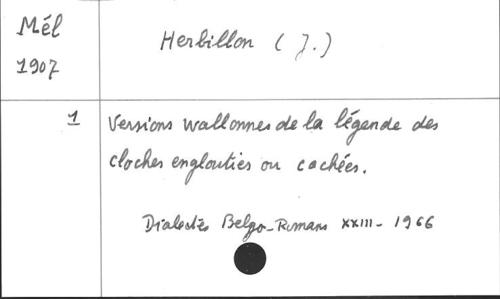 Mél
1907
Herbillon ( J. )
1
Versions wallonnes de la légende des
cloches englouties ou cachées.
Dialectes Belgo-Romans XXIII - 1966